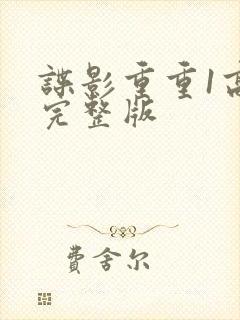 諜影重重1高
完整版
費舍尔